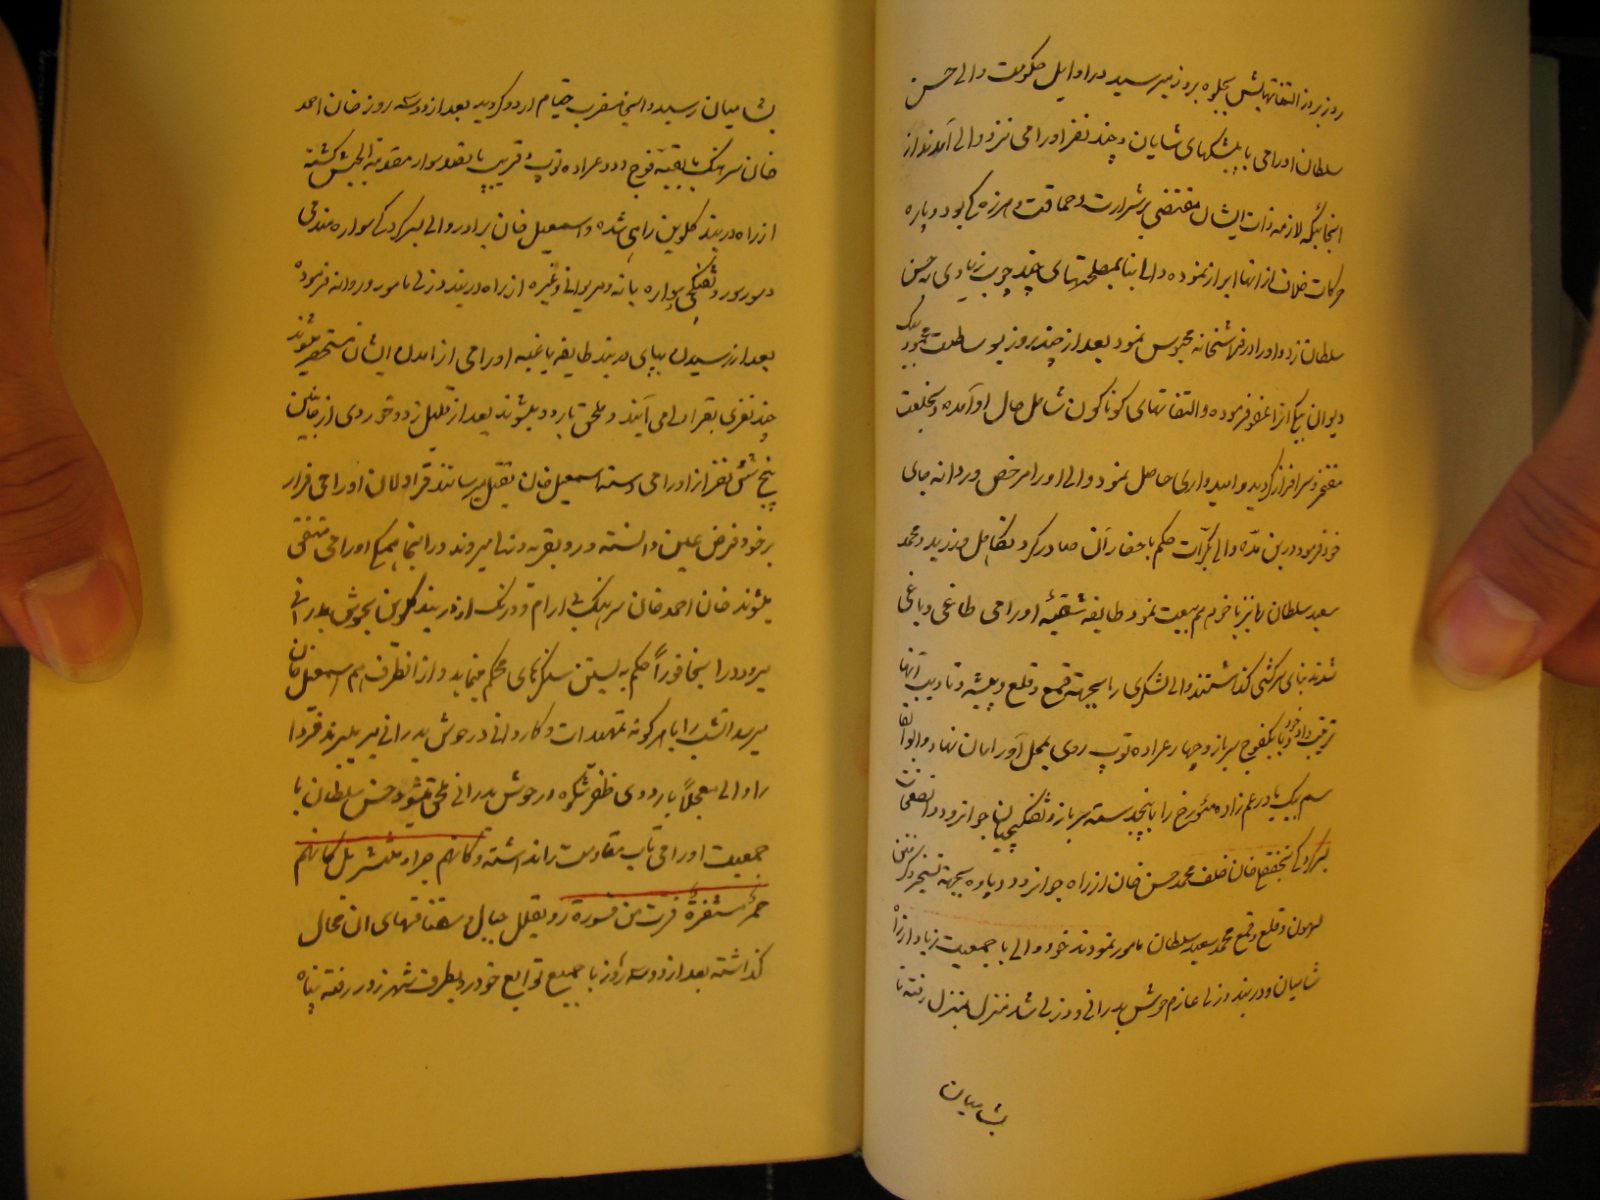 روز بروز التفاتهایش بجلوه بروز میرسید در اوایل حکومت والی حسن
سلطان اورامی با پیشکهای شایان و چند نفر اورامی نزد والی آمدند از
انجائیکه لازمه ذات ایشان مقتضی بر شرارت و حماقت و هرزه کی بود دوباره
حرکات خلاف از انها ابراز نموده والی بنا بمصلحتهای چند چوب زیادی به حسن
سلطان زد و او را در فراشخانه محبوس نمود بعد از چند روز بوساطت محمود بیک
دیوان بیکی از او عفو فرموده و التفاتهای کوناکون شامل حال او آمده و بخلعت
مفتخر و سرافراز کردید و امیدواری حاصل نمود والی او را مرخص و روانه جای
خود فرمود درین مده والی بکرات حکم باحضار آن صادر کرد تکاهل ورزید و محمد
سعید سلطان نیز با خرم هم بیعت نمود طایفه شقیه اورامی طاغی و یاغی
شدند بنای سرکشی کذاشتند والی لشکری را بجهة قمع و قلع و تادیب آنها
ترتیب داد خود و با یکفوج سرباز و چهار عراده توپ روی بمحل اورامان نهاد و ابوالقا
سم بیک یاور عم زاده مئورخ را با پنجدسته سرباز و تفنکچیان جوانرود
بسرکردکی نجفقلی خان خلف محمد حسن خان از راه جوانرود و پاوه بجهة تسخیر
لهون و قلع و قمع محمد سعید سلطان مامور نمودند خود والی با جمعیت زیاد از راه
شامیان و دربند دزلی عازم حوش بدرانی و دزلی شد منزل بمنزل رفته تا
بشامیان
بشامیان رسید و اینجا مضرب خیام اردو کردید بعد از دو سه روز خان احمد
خان سرهنک با بقیه فوج و دو عراده توپ و قریب پانصد سوار مقدمة الجیش کشته
از راه دربند کلوین راهی شده و اسمعیل خان برادر والی بسرکردکی سواره مندمی
و تفنکچی و سواره بانه و مریوانی و غیره از راه دربند دزلی مامور و روانه فرموده
بعد از رسیدن بپای دربند طایفه یاغیه اورامی از امدن ایشان مستحضر میشوند
چند نفری بقراولی می آیند و ملحق باردو میشوند بعد از قلیل زد و خوردی از جانبین
پنج شش نفر از اورامی دسته اسمعیل خان بقتل میرسانند قراولان اورامی فرار
بر خود فرض عین دانسته و رو بقریه دزلی میروند در انجا همکی اورامی متفق
میشوند خان احمد خان سرهنک بی ارام و درنک از دربند کلوین بحوش بدرانی
میرود در اینجا فوراً حکم به بستن سنکرهای محکم مینماید و از انطرف هم اسمعیل خان
میرسد انشب را با هر کونه تمهیدات و کاردانی در حوش بدرانی بسر میبرند فردا
را والی معجلاً باردوی ظفر شکوه در حوش بدرانی ملحق میشود حسن سلطان با
جمعیت اورامی تاب مقاومت را نداشته و کانهم جراد منتشر بل کانهم
حمر مستنفرة فرت من قسورة رو بقلل جبال و سقناقهای ان محال
کذاشته بعد از دو سه روز با جمیع توابع خود بطرف شهرزور رفته پناه